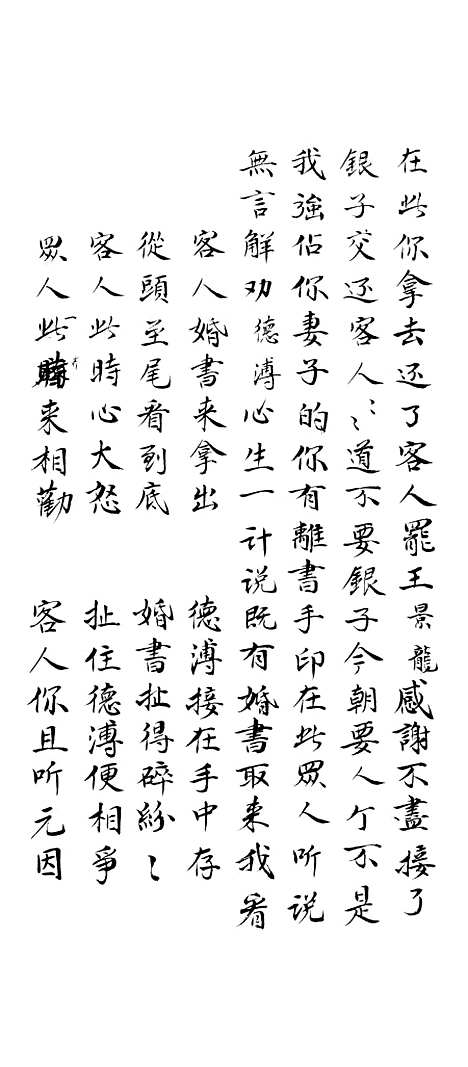 在此你拿去还了客人罷王景龍感謝不盡接了
銀子交还客人〻道不要銀子今朝要人亇不是
我強佔你妻子的你有離書手印在此眾人听说
無言解劝德溥心生一计说既有婚書取来我看
客人婚書来拿出 德溥接在手中存
從頭至尾看到底 婚書扯得碎紛〻
客人此時心大怒 扯住德溥便相爭
眾人一齊来相勸 客人你且听元因